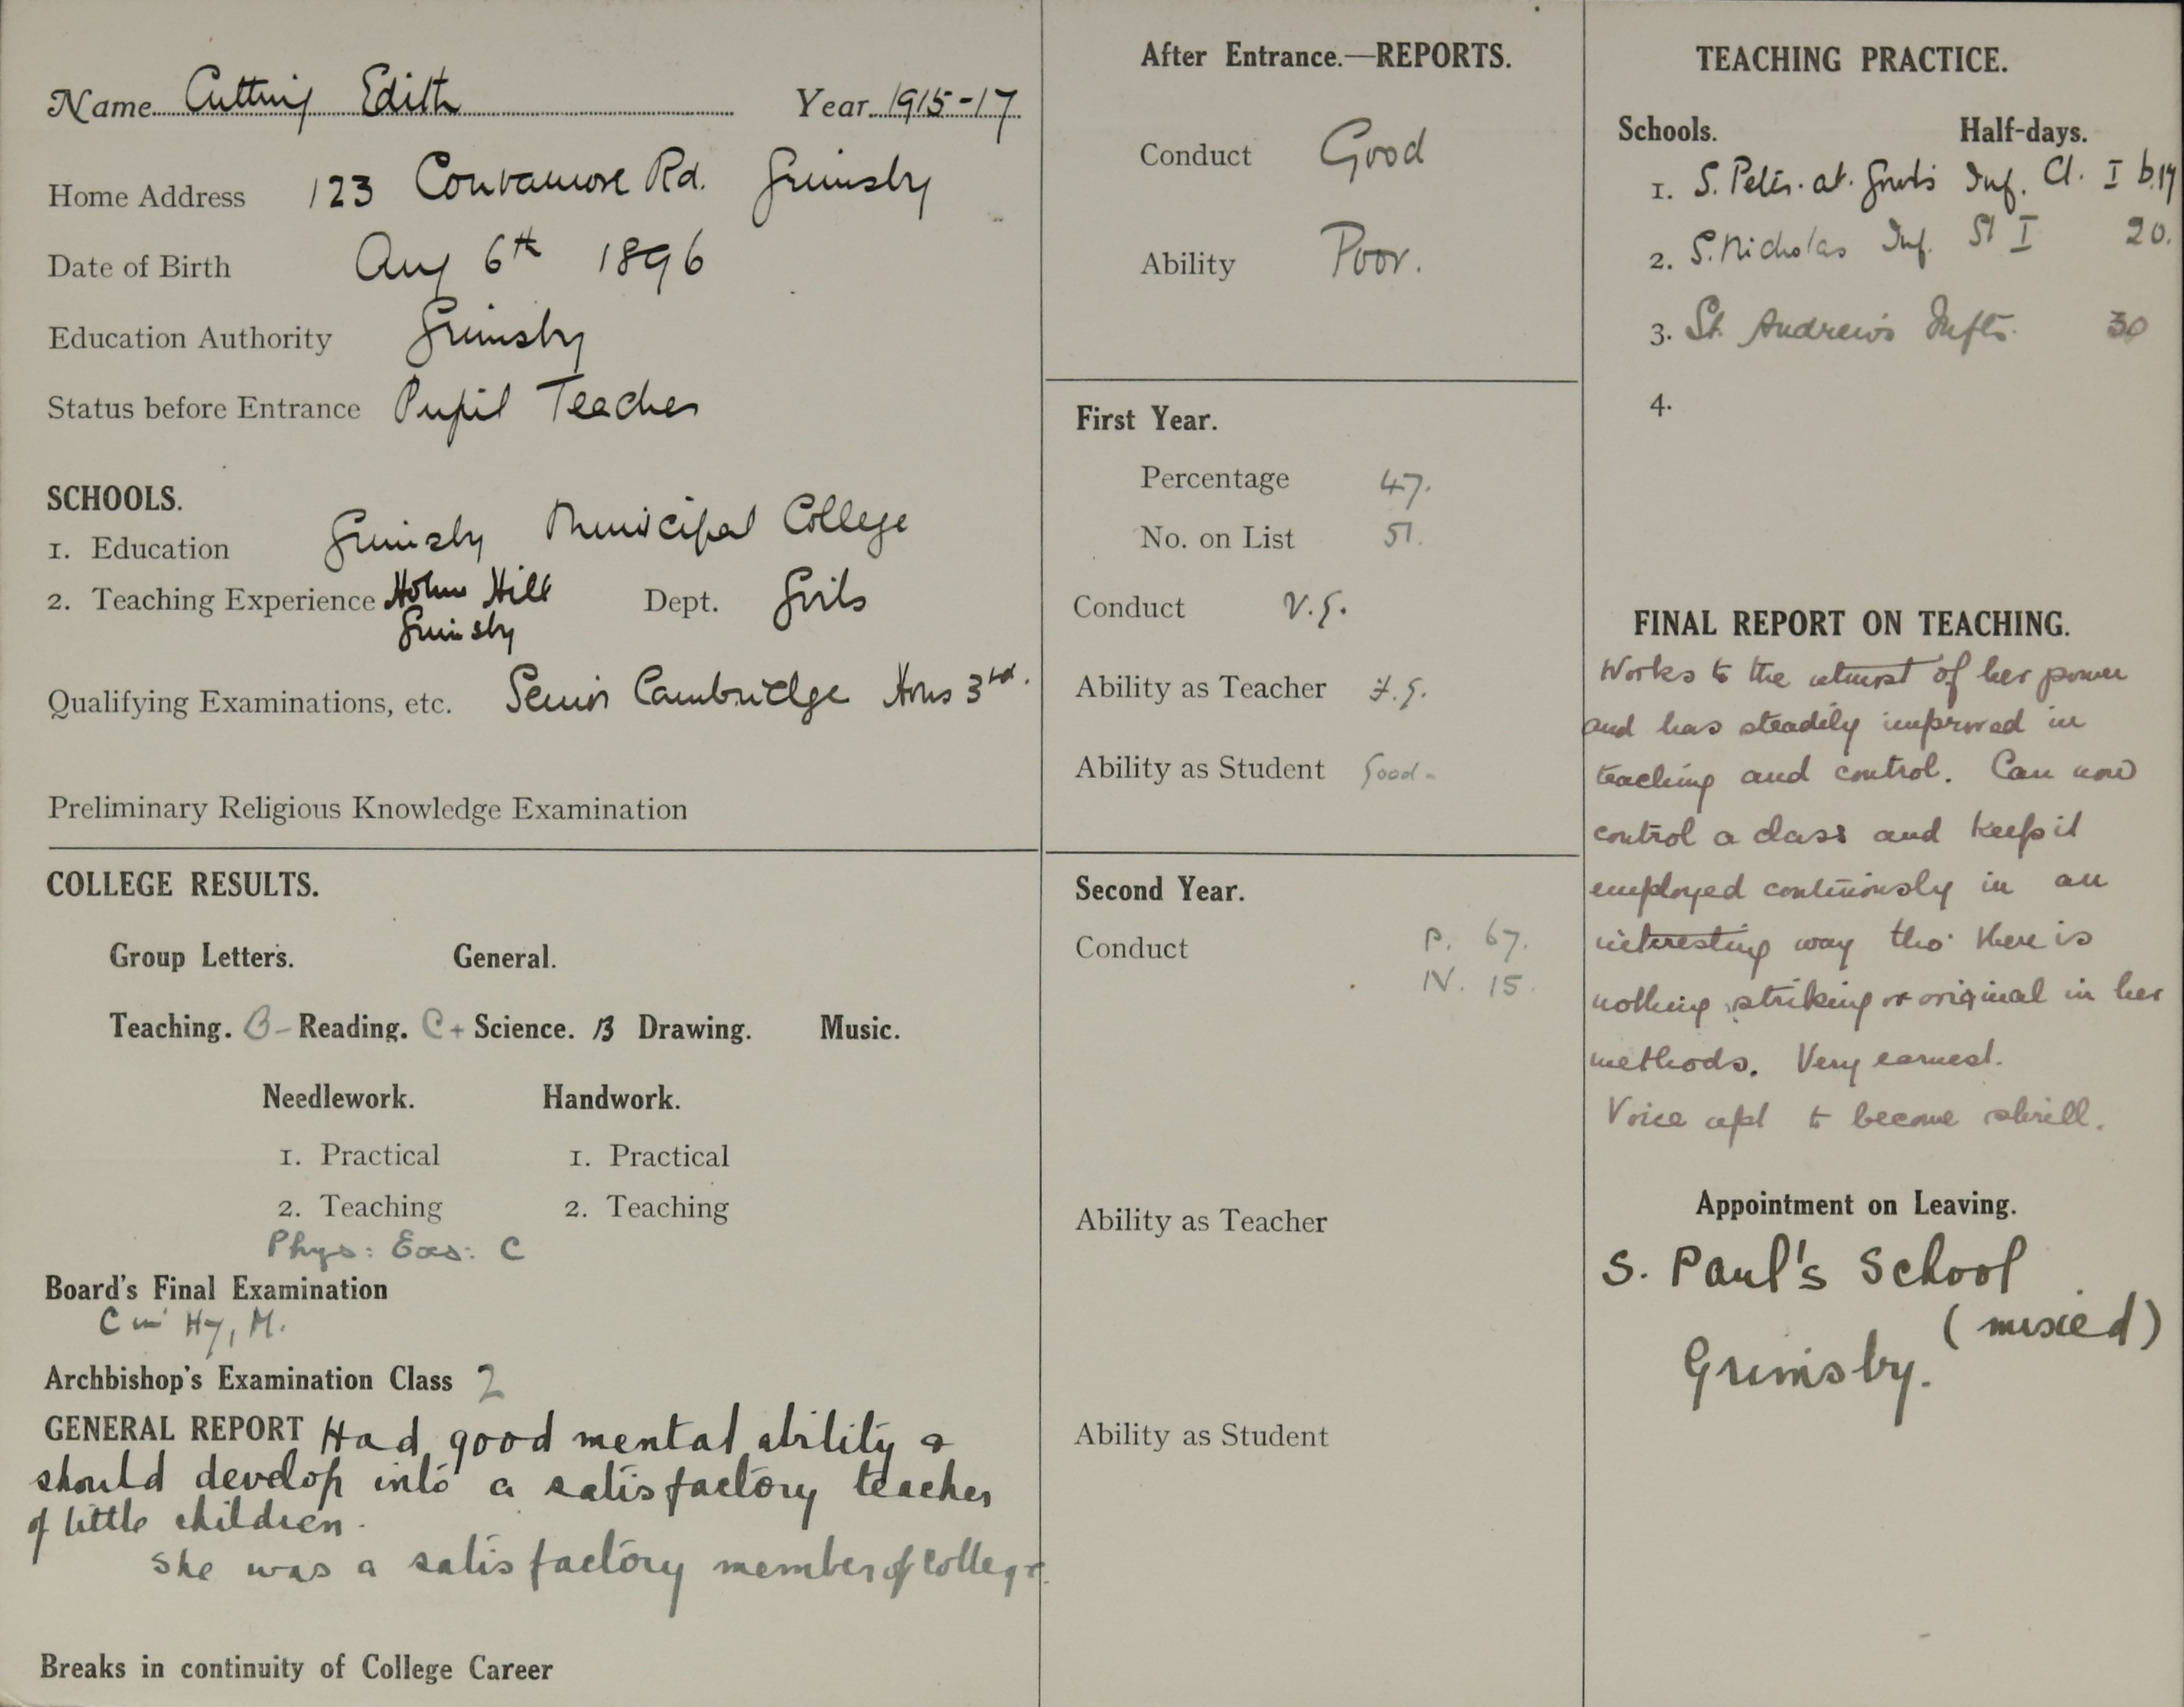 Name Cutting Edith Year 1915-17
Home Address 123 Convamore Rd. Grimsby
Date of Birth Aug 6th 1896
Education Authority Grimsby
Status before Entrance Pupil Teacher
SCHOOLS.
1. Education Grimsby Municipal College
2. Teaching Experience Holme Hill Dept. Girls
Grimsby
Qualifying Examinations, etc. Senior Cambridge Hons 3rd.
Preliminary Religious Knowledge Examination
COLLEGE RESULTS.
Group Letters. General.
Teaching. B- Reading. C+ Science. B Drawing. Music.
Needlework. Handwork.
1. Practical 1. Practical
2. Teaching 2. Teaching
Phys: Exs: C
Board's Final Examination
C in Hy, M.
Archbishop's Examination Class 2
GENERAL REPORT Had good mental ability &
should develop into a satisfactory teacher
of little children.
She was a satisfactory member of College.
Breaks in continuity of College Career
After Entrance.—REPORTS.
Conduct Good
Ability Poor.
First Year.
Percentage 47.
No. on List 51.
Conduct V.G.
Ability as Teacher F.G.
Ability as Student Good-
Second Year.
Conduct P. 67.
N. 15.
Ability as Teacher
Ability as Student
TEACHING PRACTICE.
Schools. Half-days.
1. S. Peter. at. Inf. Cl. I
2. S. Nicholas Inf. St I 20.
3. St. Andrew's Infts. 30
4.
FINAL REPORT ON TEACHING.
Works to the utmost of her power
and has steadily improved in
teaching and control. Can now
control a class and keep it
employed continuously in an
interesting way tho' there is
nothing striking or original in her
methods. Very earnest.
Voice apt to become shrill.
Appointment on Leaving.
S. Paul's School
(mixed)
Grimsby.